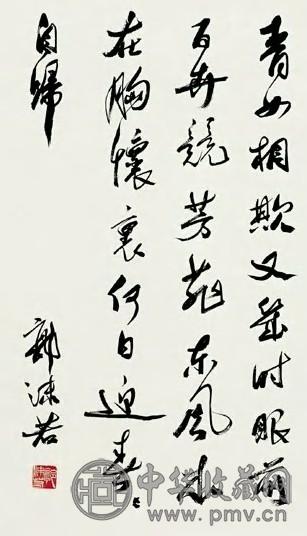 青女相欺又幾时眼前
百卉競芳菲东风放
在胸懷裏何日迎春々
自歸
郭沫若
中华收藏网
www.pmv.cn